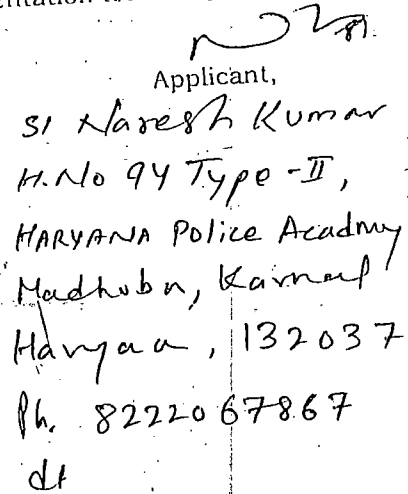 Applicant,
SI Naresh Kumar
H.No 94 Type-II,
HARYANA Police Acadmy
Madhubn, Karnal
Haryaa, 132037
Ph. 8222067867
dt